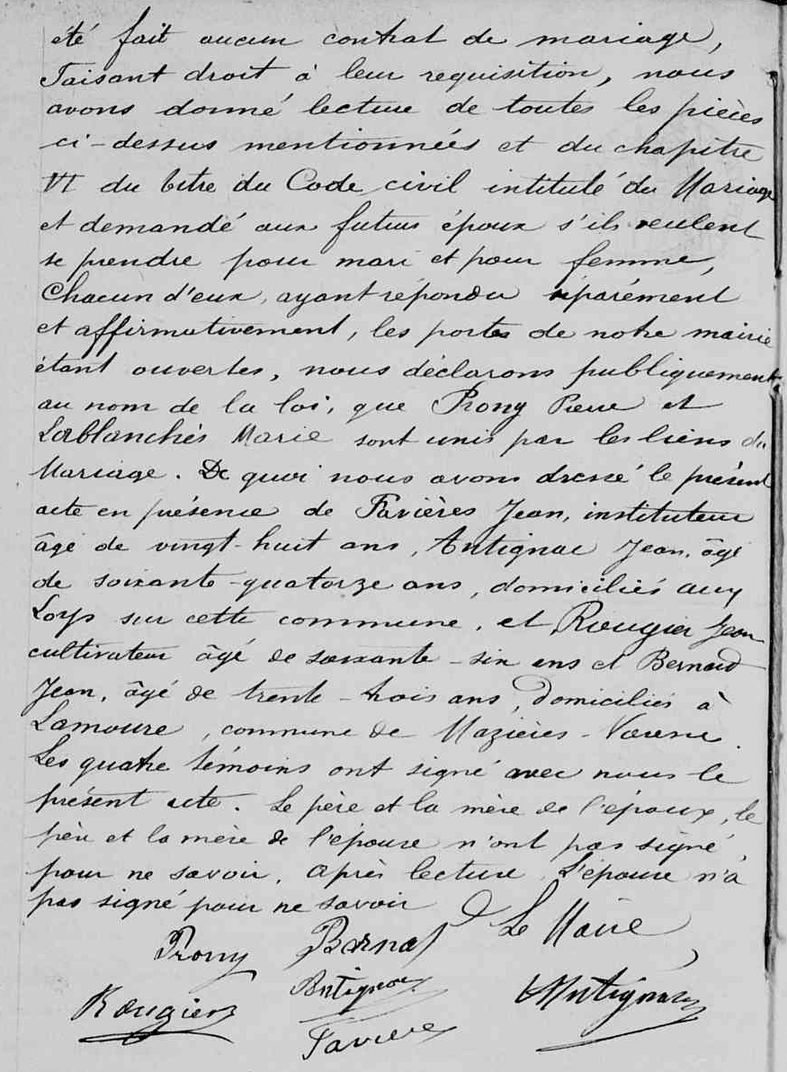 été fait aucun contrat de mariage,
Faisant droit à leur requisition, nous
avons donné lecture de toutes les pièces
ci-dessus mentionnées et du chapitre
VI du titre du Code civil intitulé du Mariage
et demandé aux futurs époux s'ils veulent
se prendre pour mari et pour femme,
Chacun d'eux, ayant répondu séparément
et affirmativement, les portes de notre mairie
étant ouvertes, nous déclarons publiquement
au nom de la loi, que Prony Pierre et
Lablanchés Marie sont unis par les liens du
Mariage. De quoi nous avons dressé le présent
acte en présence de Favières Jean, instituteur
âgé de vingt-huit ans, Antignac Jean, âgé
de soixante-quatorze ans, domiciliés aux
sur cette commune, et Rougier Jean
cultivateur âgé de soixante-six ans et Bernard
Jean, âgé de trente-trois ans, domiciliés à
Lamoure, commune de Mazières-
Les quatre témoins ont signé avec nous le
présent acte. Le père et la mère de l'époux, le
père et la mère de l'épouse n'ont pas signé,
pour ne savoir, après lecture. L'épouse n'a
pas signé pour ne savoir
Le Maire,
Prony
Antignac
Rougier
Antignac